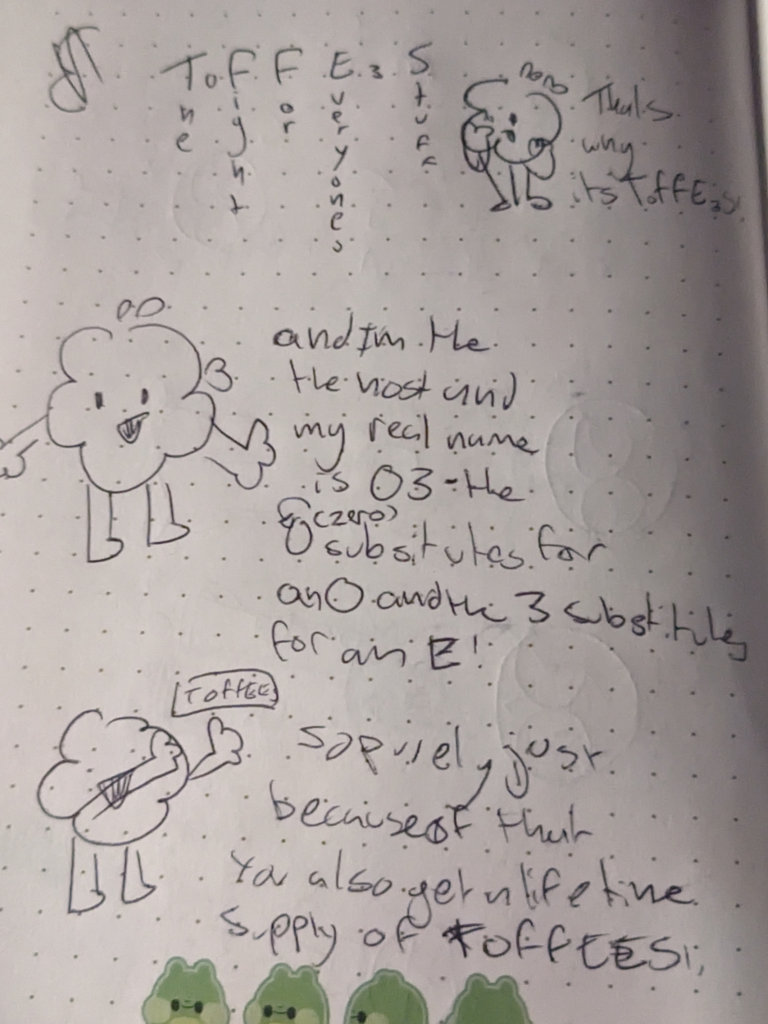 ToFFE3S
The
Fight
For
Everyones
Stuff
Thats
why
its ToffE3s!
and Im the
the host and
my real name
is O3 - the
(zero)
0 substitutes for
an O and the 3 substitutes
for an E!
So purely just
because of that
You also get a lifetime
supply of TOFFEES!,
TOFFEE